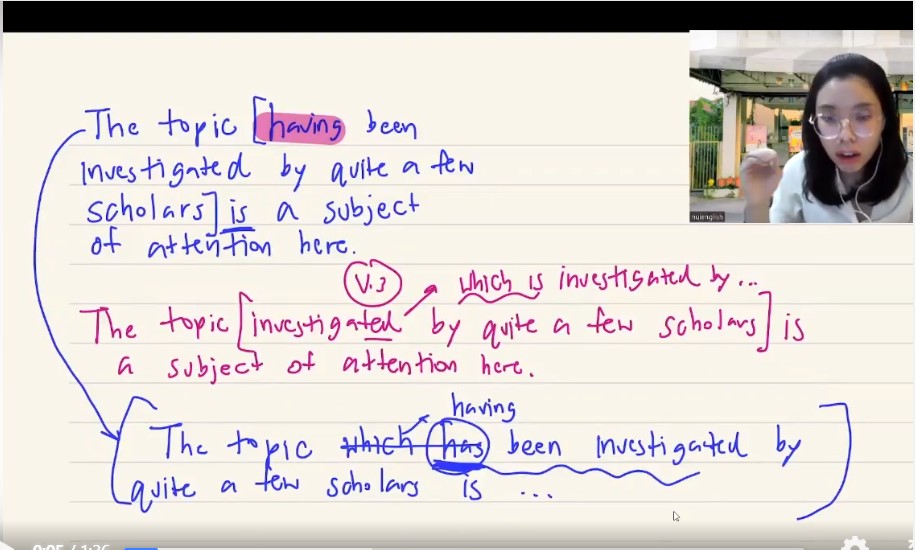 The topic [having been
investigated by quite a few
scholars] is a subject
of attention here.
V.3
which is investigated by...
The topic [investigated by quite a few scholars] is
a subject of attention here.
having
The topic which has been investigated by
quite a few scholars is ...
0:05 / 1:26